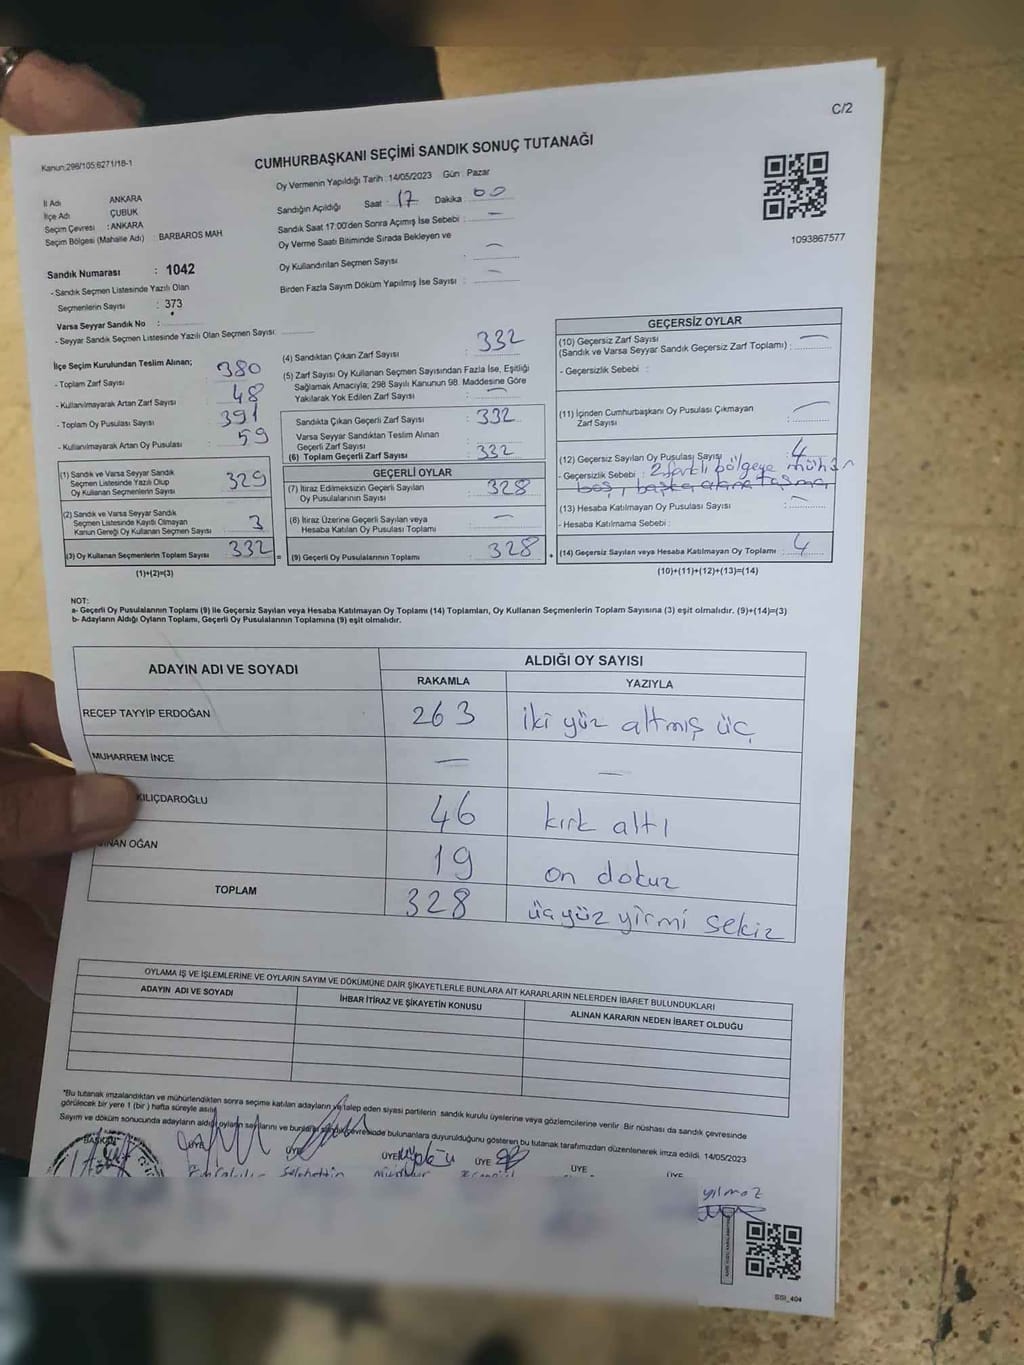 C/2
Kanun:298/105;6271/18-1
CUMHURBAŞKANI SEÇİMİ SANDIK SONUÇ TUTANAĞI
Oy Vermenin Yapıldığı Tarih : 14/05/2023 Gün : Pazar
İl Adı ANKARA
İlçe Adı ÇUBUK
Seçim Çevresi : ANKARA
Seçim Bölgesi (Mahalle Adı) : BARBAROS MAH
Sandığın Açıldığı Saat : 17 Dakika : 00
Sandık Saat 17:00'den Sonra Açımış İse Sebebi : —
Oy Verme Saati Bitiminde Sırada Bekleyen ve
Oy Kullandırılan Seçmen Sayısı : —
Birden Fazla Sayım Döküm Yapılmış İse Sayısı : —
1093867577
Sandık Numarası : 1042
- Sandık Seçmen Listesinde Yazılı Olan
Seçmenlerin Sayısı : 373
Varsa Seyyar Sandık No :
- Seyyar Sandık Seçmen Listesinde Yazılı Olan Seçmen Sayısı:
İlçe Seçim Kurulundan Teslim Alınan;
- Toplam Zarf Sayısı : 380
- Kullanılmayarak Artan Zarf Sayısı : 48
- Toplam Oy Pusulası Sayısı : 391
- Kullanılmayarak Artan Oy Pusulası : 59
(1) Sandık ve Varsa Seyyar Sandık
Seçmen Listesinde Yazılı Olup
Oy Kullanan Seçmenlerin Sayısı : 329
(2) Sandık ve Varsa Seyyar Sandık
Seçmen Listesinde Kayıtlı Olmayan
Kanun Gereği Oy Kullanan Seçmen Sayısı : 3
(3) Oy Kullanan Seçmenlerin Toplam Sayısı : 332
(1)+(2)=(3)
(4) Sandıktan Çıkan Zarf Sayısı : 332
(5) Zarf Sayısı Oy Kullanan Seçmen Sayısından Fazla İse, Eşitliği
Sağlamak Amacıyla; 298 Sayılı Kanunun 98. Maddesine Göre
Yakılarak Yok Edilen Zarf Sayısı : —
Sandıkta Çıkan Geçerli Zarf Sayısı : 332
Varsa Seyyar Sandıktan Teslim Alınan
Geçerli Zarf Sayısı :
(6) Toplam Geçerli Zarf Sayısı : 332
GEÇERLİ OYLAR
(7) İtiraz Edimeksizin Geçerli Sayılan
Oy Pusulalarının Sayısı : 328
(8) İtiraz Üzerine Geçerli Sayılan veya
Hesaba Katılan Oy Pusulası Toplamı : —
= (9) Geçerli Oy Pusulalarının Toplamı : 328 +
GEÇERSİZ OYLAR
(10) Geçersiz Zarf Sayısı
(Sandık ve Varsa Seyyar Sandık Geçersiz Zarf Toplamı) : —
- Geçersizlik Sebebi :
(11) İçinden Cumhurbaşkanı Oy Pusulası Çıkmayan
Zarf Sayısı : —
(12) Geçersiz Sayılan Oy Pusulası Sayısı : 4
- Geçersizlik Sebebi : 2 farklı bölgeye mühür
boş, başka alana taşma
(13) Hesaba Katılmayan Oy Pusulası Sayısı : —
- Hesaba Katılmama Sebebi :
(14) Geçersiz Sayılan veya Hesaba Katılmayan Oy Toplamı : 4
(10)+(11)+(12)+(13)=(14)
NOT:
a- Geçerli Oy Pusulalarının Toplamı (9) ile Geçersiz Sayılan veya Hesaba Katılmayan Oy Toplamı (14) Toplamları, Oy Kullanan Seçmenlerin Toplam Sayısına (3) eşit olmalıdır. (9)+(14)=(3)
b- Adayların Aldığı Oyların Toplamı, Geçerli Oy Pusulalarının Toplamına (9) eşit olmalıdır.
ADAYIN ADI VE SOYADI ALDIĞI OY SAYISI
RAKAMLA YAZIYLA
RECEP TAYYİP ERDOĞAN 263 iki yüz altmış üç
MUHARREM İNCE — —
KILIÇDAROĞLU 46 kırk altı
OĞAN 19 on dokuz
TOPLAM 328 üçyüz yirmi sekiz
OYLAMA İŞ VE İŞLEMLERİNE VE OYLARIN SAYIM VE DÖKÜMÜNE DAİR ŞİKAYETLERLE BUNLARA AİT KARARLARIN NELERDEN İBARET BULUNDUKLARI
ADAYIN ADI VE SOYADI İHBAR İTİRAZ VE ŞİKAYETİN KONUSU ALINAN KARARIN NEDEN İBARET OLDUĞU
*Bu tutanak imzalandıktan ve mühürlendikten sonra seçime katılan adayların ve talep eden siyasi partilerin sandık kurulu üyelerine veya gözlemcilerine verilir. Bir nüshası da sandık çevresinde
görülecek bir yere 1 (bir) hafta süreyle asılır
Sayım ve döküm sonucunda adayların aldığı oyların sayılarını ve bunların sandık çevresinde bulunanlara duyurulduğunu gösteren bu tutanak tarafımızdan düzenlenerek imza edildi. 14/05/2023
BAŞKAN ÜYE ÜYE ÜYE ÜYE ÜYE ÜYE
Selahettin
yılmaz
SSI_404